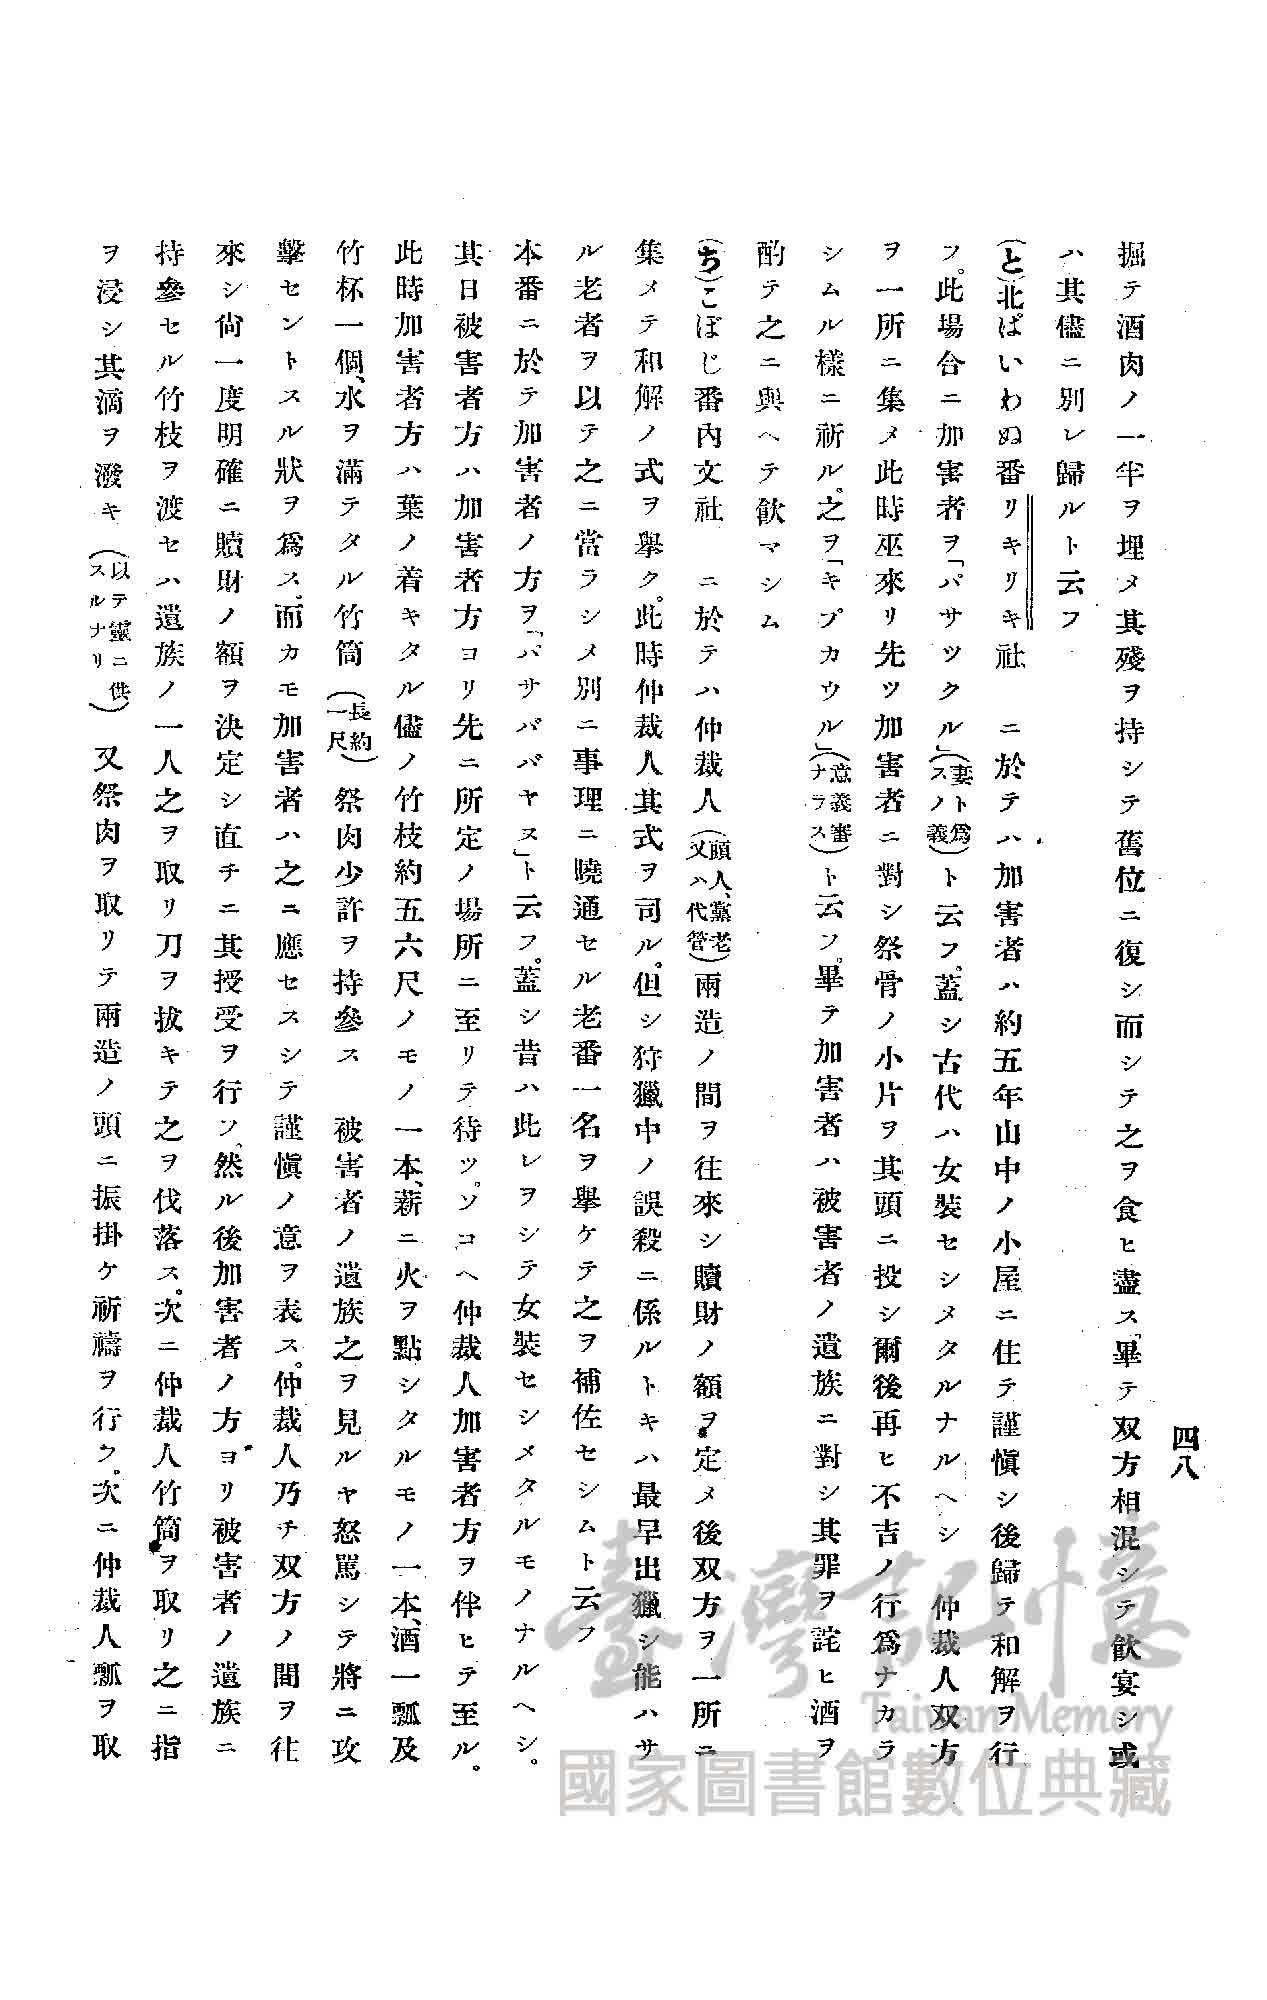 四八
掘テ酒肉ノ一半ヲ埋メ其殘ヲ持シテ舊位ニ復シ而シテ之ヲ食ヒ盡ス「畢テ双方相混シテ飮宴シ或
ハ其儘ニ別レ歸ルト云フ
(と)北ぱいわぬ番リキリキ社 ニ於テハ加害者ハ約五年山中ノ小屋ニ住テ謹愼シ後歸テ和解ヲ行
フ。此場合ニ加害者ヲ「パサツクル」(妻ト爲スノ義)ト云フ。蓋シ古代ハ女裝セシメタルナルヘシ 仲裁人双方
ヲ一所ニ集メ此時巫來リ先ツ加害者ニ對シ祭骨ノ小片ヲ其頭ニ投シ爾後再ヒ不吉ノ行爲ナカラ
シムル樣ニ祈ル。之ヲ「キプカウル」(意義審ナラス)ト云フ。畢テ加害者ハ被害者ノ遺族ニ對シ其罪ヲ詫ヒ酒ヲ
酌テ之ニ與ヘテ飮マシム
(ち)こぼじ番內文社 ニ於テハ仲裁人(頭人、黨老又ハ代管)兩造ノ間ヲ往來シ贖財ノ額ヲ定メ後双方ヲ一所ニ
集メテ和解ノ式ヲ擧ク。此時仲裁人其式ヲ司ル。但シ狩獵中ノ誤殺ニ係ルトキハ最早出獵シ能ハサ
ル老者ヲ以テ之ニ當ラシメ別ニ事理ニ曉通セル老番一名ヲ擧ケテ之ヲ補佐セシムト云フ
本番ニ於テ加害者ノ方ヲ「パサパバヤヌ」ト云フ。蓋シ昔ハ此レヲシテ女裝セシメタルモノナルヘシ。
其日被害者方ハ加害者方ヨリ先ニ所定ノ場所ニ至リテ待ツ。ソコヘ仲裁人加害者方ヲ伴ヒテ至ル。
此時加害者方ハ葉ノ着キタル儘ノ竹枝約五六尺ノモノ一本、薪ニ火ヲ點シタルモノ一本、酒一瓢及
竹杯一個、水ヲ滿テタル竹筒(長約一尺)祭肉少許ヲ持參ス 被害者ノ遺族之ヲ見ルヤ怒罵シテ將ニ攻
擊セントスル狀ヲ爲ス。而カモ加害者ハ之ニ應セスシテ謹愼ノ意ヲ表ス。仲裁人乃チ双方ノ間ヲ往
來シ尙一度明確ニ贖財ノ額ヲ決定シ直チニ其授受ヲ行フ。然ル後加害者ノ方ヨリ被害者ノ遺族ニ
持參セル竹枝ヲ渡セハ遺族ノ一人之ヲ取リ刀ヲ拔キテ之ヲ伐落ス。次ニ仲裁人竹筒ヲ取リ之ニ指
ヲ浸シ其滴ヲ潑キ(以テ靈ニ供スルナリ) 又祭肉ヲ取リテ兩造ノ頭ニ振掛ケ祈禱ヲ行フ。次ニ仲裁人瓢ヲ取
臺灣記憶
Taiwan Memory
國家圖書館數位典藏